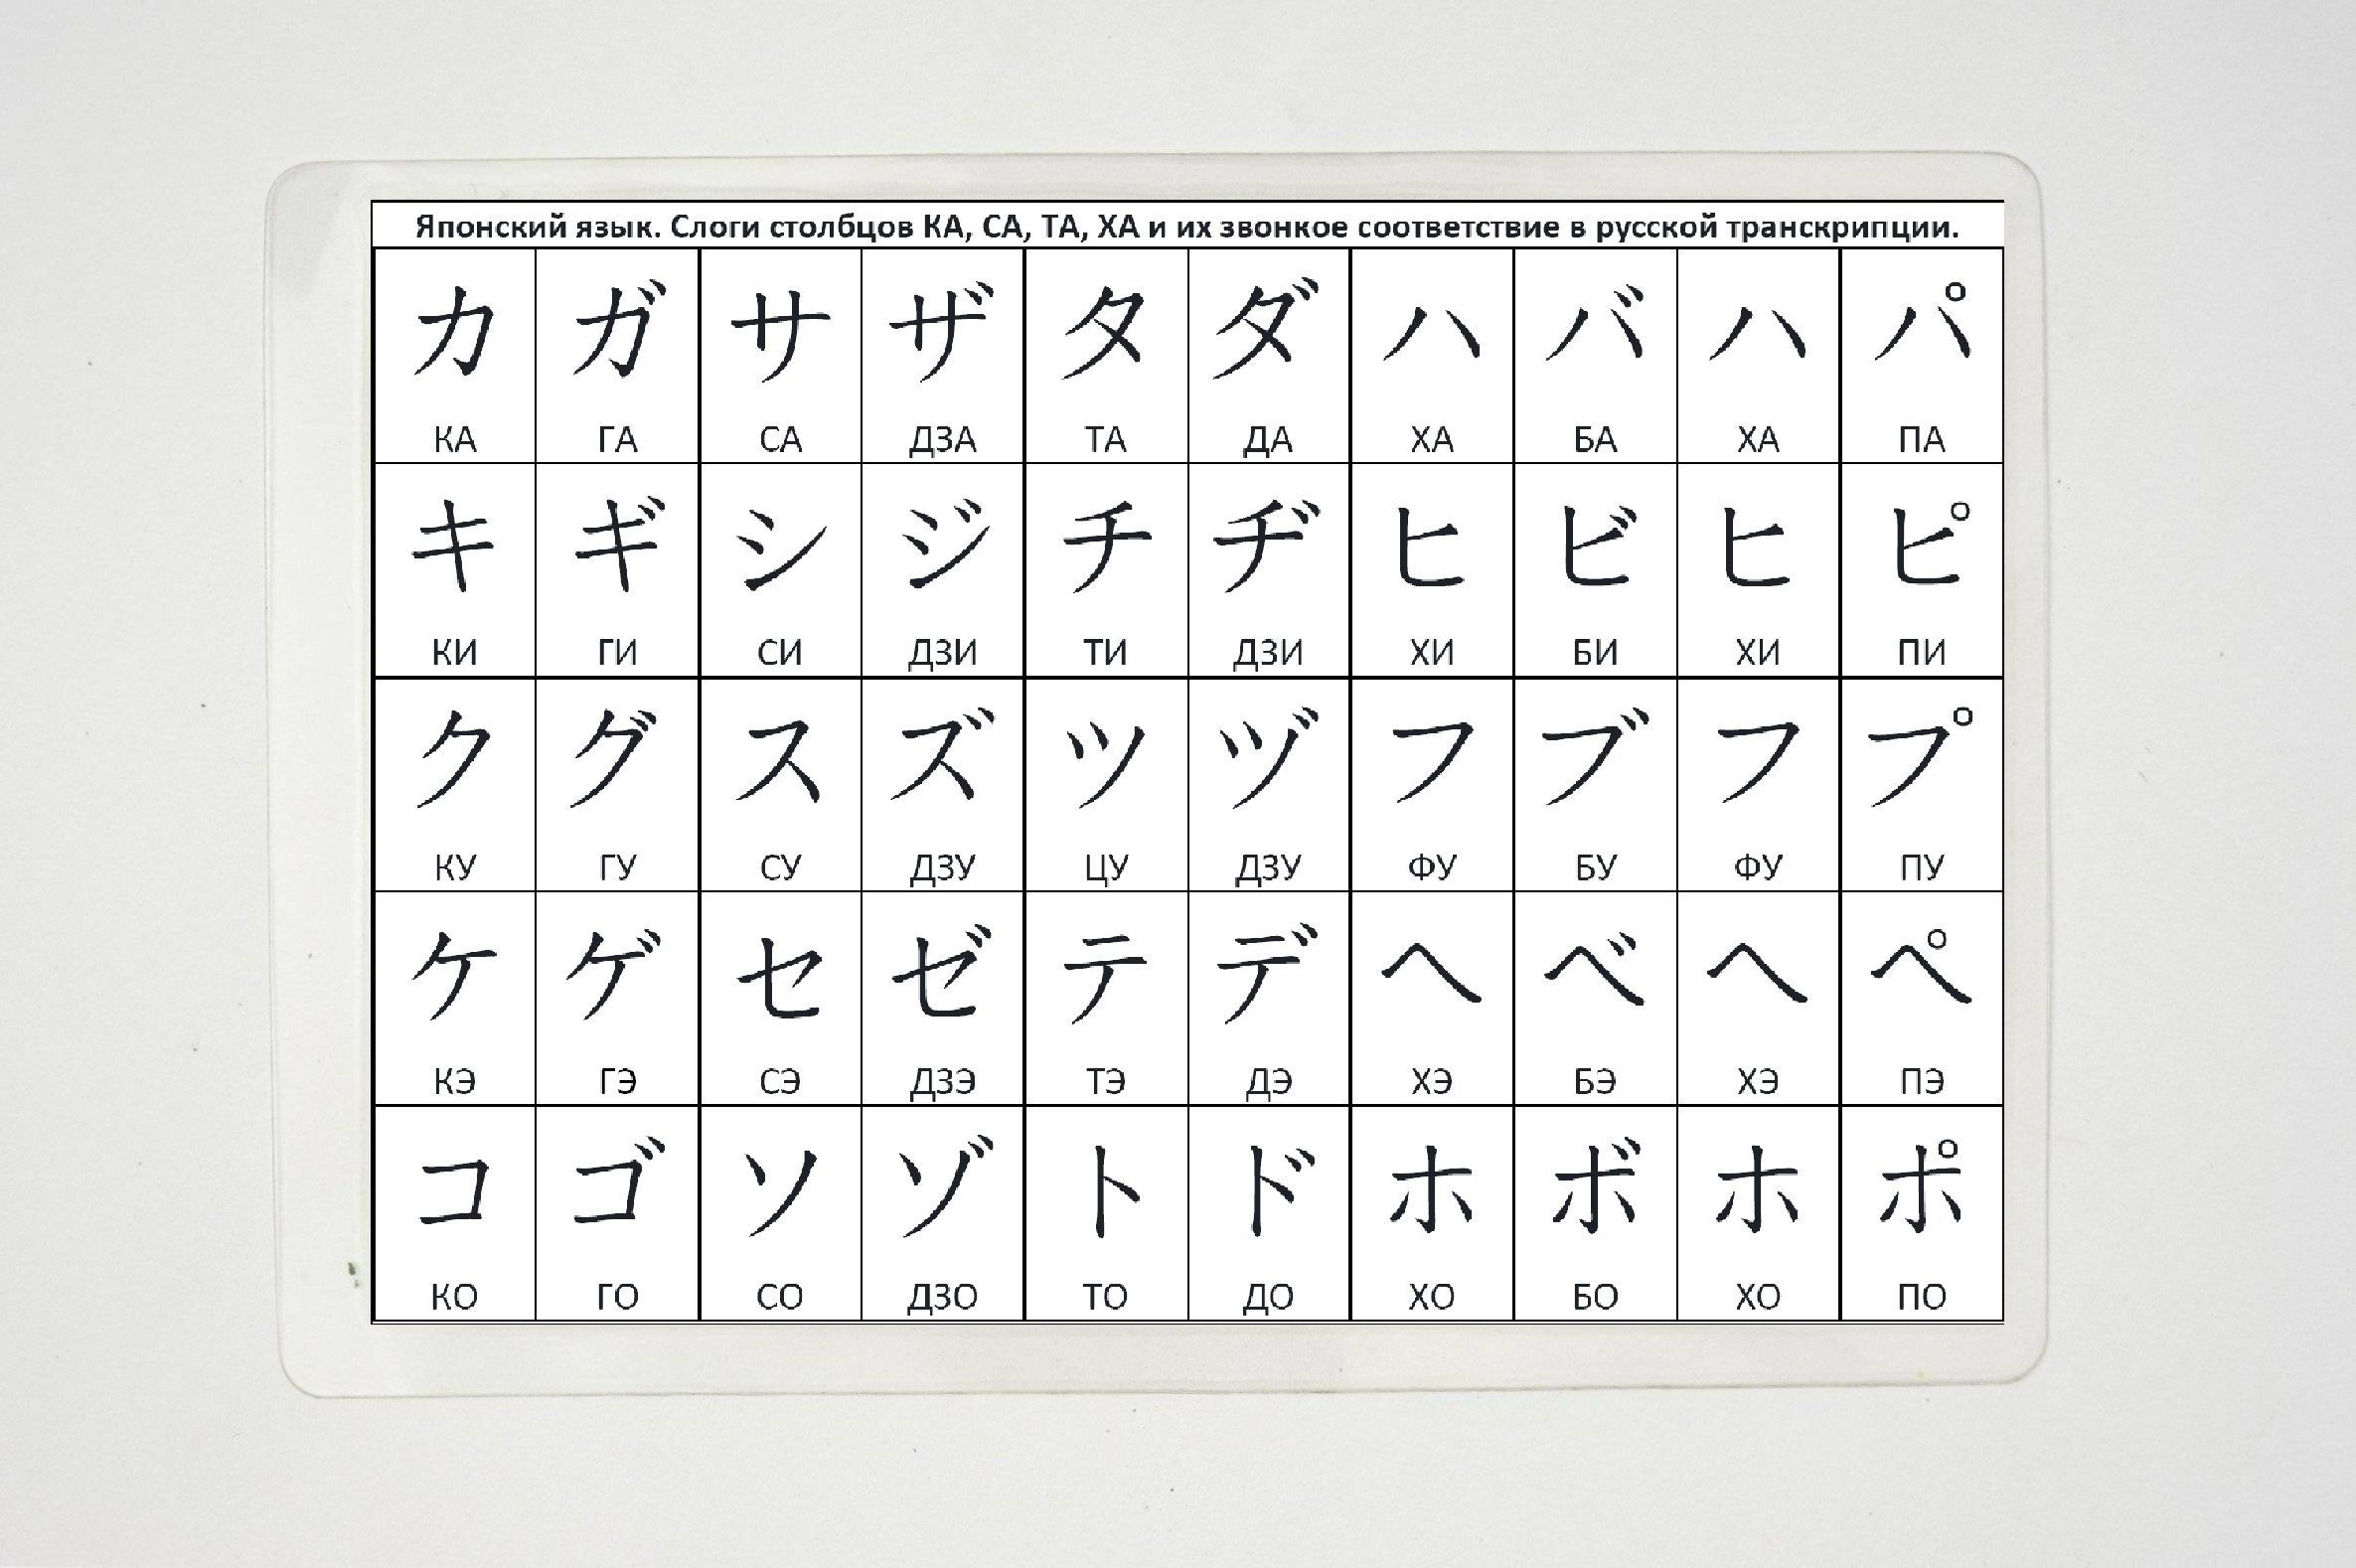 Японский язык. Слоги столбцов КА, СА, ТА, ХА и их звонкое соответствие в русской транскрипции.
カ ガ サ ザ タ ダ ハ バ ハ パ
КА ГА СА ДЗА ТА ДА ХА БА ХА ПА
キ ギ シ ジ チ ヂ ヒ ビ ヒ ピ
КИ ГИ СИ ДЗИ ТИ ДЗИ ХИ БИ ХИ ПИ
ク グ ス ズ ツ ヅ フ ブ フ プ
КУ ГУ СУ ДЗУ ЦУ ДЗУ ФУ БУ ФУ ПУ
ケ ゲ セ ゼ テ デ ヘ ベ ヘ ペ
КЭ ГЭ СЭ ДЗЭ ТЭ ДЭ ХЭ БЭ ХЭ ПЭ
コ ゴ ソ ゾ ト ド ホ ボ ホ ポ
КО ГО СО ДЗО ТО ДО ХО БО ХО ПО